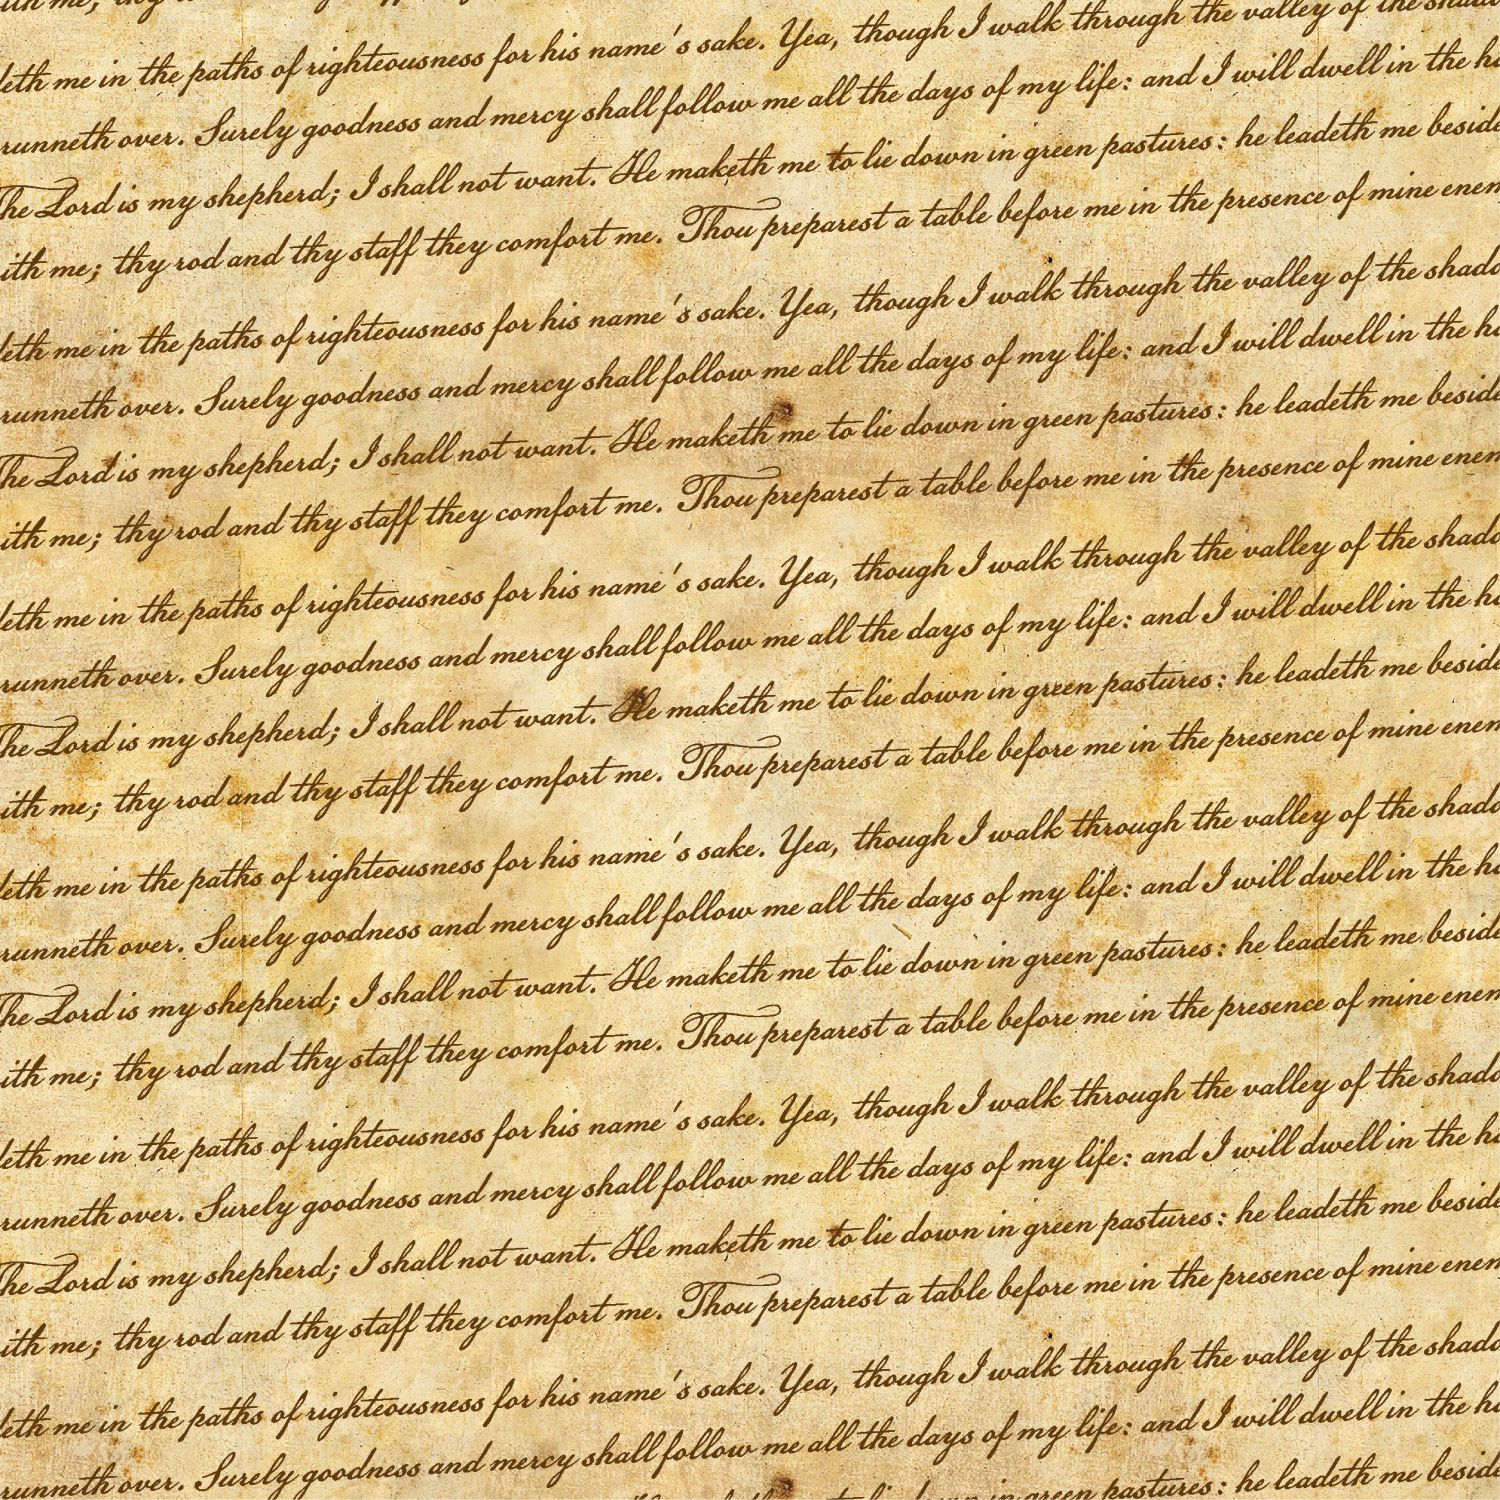 ith me; thy
deth me in the paths of righteousness for his name's sake. Yea, though I walk through the valley of the shado
runneth over. Surely goodness and mercy shall follow me all the days of my life: and I will dwell in the ho
The Lord is my shepherd; I shall not want. He maketh me to lie down in green pastures: he leadeth me beside
ith me; thy rod and thy staff they comfort me. Thou preparest a table before me in the presence of mine enem
deth me in the paths of righteousness for his name's sake. Yea, though I walk through the valley of the shado
runneth over. Surely goodness and mercy shall follow me all the days of my life: and I will dwell in the ho
The Lord is my shepherd; I shall not want. He maketh me to lie down in green pastures: he leadeth me beside
ith me; thy rod and thy staff they comfort me. Thou preparest a table before me in the presence of mine enem
deth me in the paths of righteousness for his name's sake. Yea, though I walk through the valley of the shado
runneth over. Surely goodness and mercy shall follow me all the days of my life: and I will dwell in the ho
The Lord is my shepherd; I shall not want. He maketh me to lie down in green pastures: he leadeth me beside
ith me; thy rod and thy staff they comfort me. Thou preparest a table before me in the presence of mine enem
deth me in the paths of righteousness for his name's sake. Yea, though I walk through the valley of the shado
runneth over. Surely goodness and mercy shall follow me all the days of my life: and I will dwell in the ho
The Lord is my shepherd; I shall not want. He maketh me to lie down in green pastures: he leadeth me beside
ith me; thy rod and thy staff they comfort me. Thou preparest a table before me in the presence of mine enem
deth me in the paths of righteousness for his name's sake. Yea, though I walk through the valley of the shado
runneth over. Surely goodness and mercy shall follow me all the days of my life: and I will dwell in the ho
The Lord is my shepherd; I shall not want. He maketh me to lie down in green pastures: he leadeth me beside
ith me; thy rod and thy staff they comfort me. Thou preparest a table before me in the presence of mine enem
deth me in the paths of righteousness for his name's sake. Yea, though I walk through the valley of the shado
runneth over. Surely goodness and mercy shall follow me all the days of my life: and I will dwell in the ho
in green pastures: he leadeth me beside